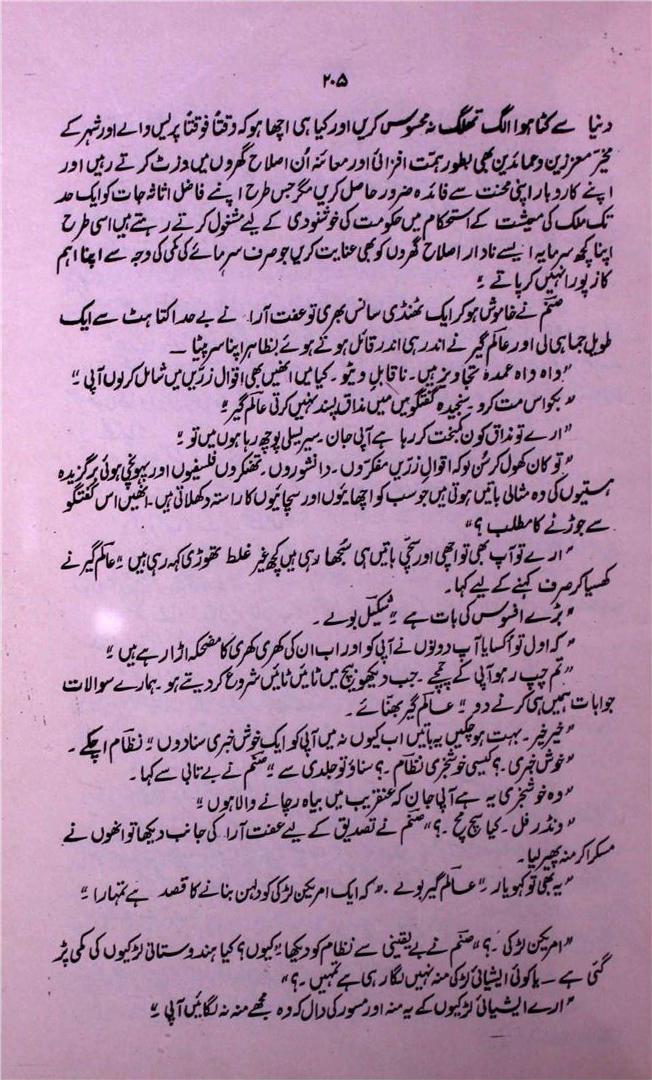 ۲۰۵
دنیا سے کٹا ہوا الگ تھلگ نہ محسوس کریں اور کیا ہی اچھا ہو کہ وقتاً فوقتاً پریس والے اور شہر کے
مخیّر معززین و عمائدین بھی بطور ہمّت افزائی اور معائنہ اُن اصلاح گھروں میں وزٹ کرتے رہیں اور
اپنے کاروبار اپنی محنت سے فائدہ ضرور حاصل کریں مگر جس طرح اپنے فاضل اثاثہ جات کو ایک حد
تک ملک کی معیشت کے استحکام میں حکومت کی خوشنودی کے لیے مشغول کرتے رہتے ہیں اسی طرح
اپنا کچھ سرمایہ ایسے نادار اصلاح گھروں کو بھی عنایت کریں جو صرف سرمائے کی کمی کی وجہ سے اپنا اہم
کاز پورا نہیں کر پاتے ۔"
صنّم نے خاموش ہو کر ایک ٹھنڈی سانس بھری تو عفت آرا۔ نے بے حد اکتاہٹ سے ایک
طویل جماہی لی اور عالمگیر نے اندر ہی اندر قائل ہوتے ہوئے بظاہر اپنا سر پیٹا ۔
"واہ واہ عمدہ تجاویز ہیں۔ ناقابلِ ویٹو ۔ کیا میں انھیں بھی اقوال زرّیں میں شامل کر لوں آپی ۔"
"بکواس مت کرو ۔ سنجیدہ گفتگو میں میں مذاق پسند نہیں کرتی عالمگیر ۔"
"ارے تو مذاق کون کمبخت کر رہا ہے آپی جان ۔ سیریسلی پوچھ رہا ہوں میں تو ۔"
"تو کان کھول کر سُن لو کہ اقوالِ زرّیں مفکّروں ۔ دانشوروں ۔ تفکروں فلسفیوں اور پہونچی ہوئی برگزیدہ
ہستیوں کی وہ مثالی باتیں ہوتی ہیں جو سب کو اچھائیوں اور سچائیوں کا راستہ دکھلاتی ہیں۔ انھیں اس گفتگو
سے جوڑنے کا مطلب ؟"
"ارے تو آپ بھی تو اچھی اور سچّی باتیں ہی سُجھا رہی ہیں کچھ غیر غلط تھوڑی کہہ رہی ہیں ۔" عالمگیر نے
کھسیا کر صرف کہنے کے لیے کہا۔
"بڑے افسوس کی بات ہے ۔" شکیل بولے ۔
"کہ اول تو اُکسایا آپ دونوں نے آپی کو اور اب ان کی کھری کھری کا مضحکہ اڑا رہے ہیں ۔"
"تم چپ رہو آپی کے چمچے ۔ جب دیکھو بیچ میں ٹائیں ٹائیں شروع کر دیتے ہو ۔ ہمارے سوالات
جوابات ہمیں ہی کرنے دو ۔" عالمگیر بھنّائے ۔
"خیر خیر ۔ بہت ہو چکیں یہ باتیں اب کیوں نہ میں آپی کو ایک خوش خبری سنا دوں ۔" نظام اچکے ۔
"خوش خبری ۔؟ کیسی خوشخبری نظام ۔؟ سناؤ تو جلدی سے ۔" صنّم نے بے تابی سے کہا۔
"وہ خوشخبری یہ ہے آپی جان کہ عنقریب میں بیاہ رچانے والا ہوں ۔"
"ونڈر فل ۔ کیا سچ مچ ۔؟" صنّم نے تصدیق کے لیے عفت آرا۔ کی جانب دیکھا تو انھوں نے
مسکرا کر منہ پھیر لیا ۔
"یہ بھی تو کہو یار ۔" عالمگیر بولے ۔ "کہ ایک امریکن لڑکی کو دلہن بنانے کا قصد ہے تمہارا ۔"
"امریکن لڑکی ۔؟" صنّم نے بے یقینی سے نظام کو دیکھا۔ "کیوں؟ کیا ہندوستانی لڑکیوں کی کمی پڑ
گئی ہے ۔ یا کوئی ایشیائی لڑکی منہ نہیں لگا رہی ہے تمہیں ۔؟"
"ارے ایشیائی لڑکیوں کے یہ منہ اور مسور کی دال کہ وہ مجھے منہ نہ لگائیں آپی ۔"